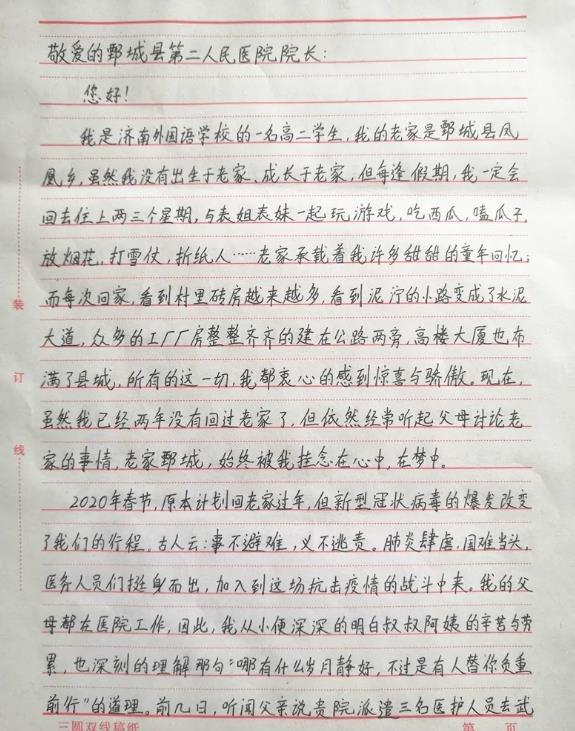 敬爱的鄄城县第二人民医院院长:
您好!
我是济南外国语学校的一名高二学生,我的老家是鄄城县凤
凰乡,虽然我没有出生于老家、成长于老家,但每逢假期,我一定会
回去住上两三个星期,与表姐表妹一起玩游戏,吃西瓜,嗑瓜子,
放烟花,打雪仗,折纸人……老家承载着我许多甜甜的童年回忆;
而每次回家,看到村里砖房越来越多,看到泥泞的小路变成了水泥
大道,众多的工厂厂房整整齐齐的建在公路两旁,高楼大厦也布
满了县城,所有的这一切,我都衷心的感到惊喜与骄傲。现在,
虽然我已经两年没有回过老家了,但依然经常听起父母讨论老
家的事情,老家鄄城,始终被我挂念在心中,在梦中。
2020年春节,原本计划回老家过年,但新型冠状病毒的爆发改变
了我们的行程,古人云:事不避难,义不逃责。肺炎肆虐,国难当头,
医务人员们挺身而出,加入到这场抗击疫情的战斗中来。我的父
母都在医院工作,因此,我从小便深深的明白叔叔阿姨的辛苦与劳
累,也深刻的理解那句“哪有什么岁月静好,不过是有人替你负重
前行”的道理。前几日,听闻父亲说贵院派遣三名医护人员去武
装
订
线
三圆双线稿纸
第 页